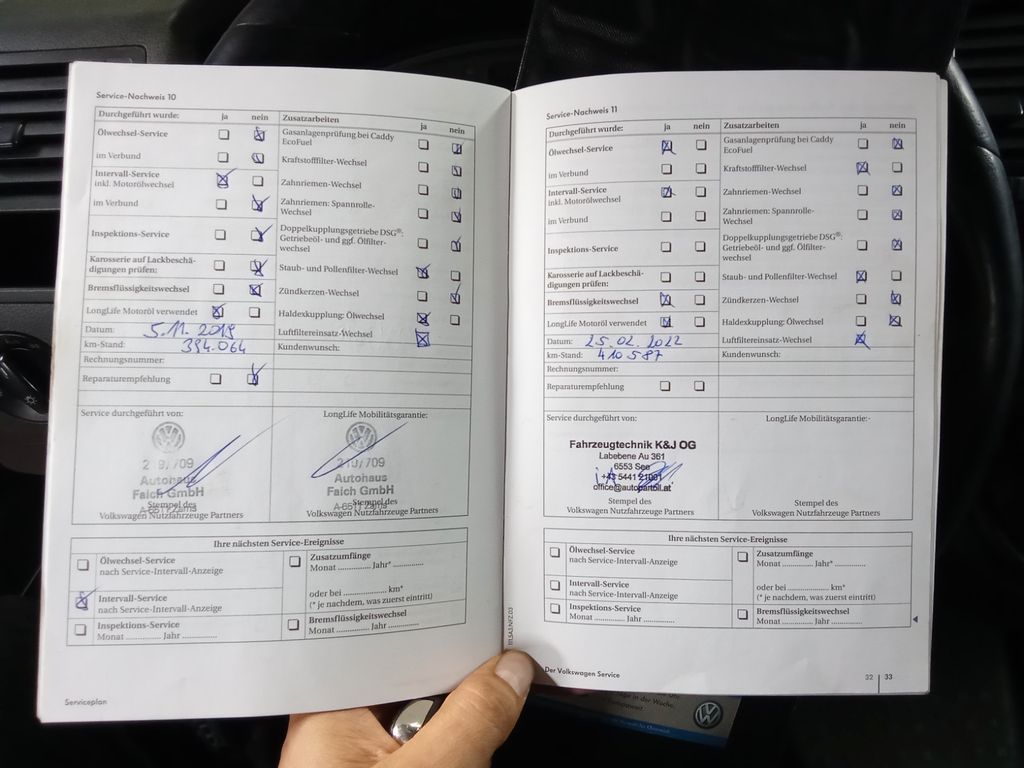 Service-Nachweis 10
Durchgeführt wurde: ja nein Zusatzarbeiten ja nein
Ölwechsel-Service
Gasanlagenprüfung bei Caddy
EcoFuel
im Verbund
Kraftstofffilter-Wechsel
Intervall-Service
inkl. Motorölwechsel
Zahnriemen-Wechsel
im Verbund
Zahnriemen: Spannrolle-
Wechsel
Inspektions-Service
Doppelkupplungsgetriebe DSG®:
Getriebeöl- und ggf. Ölfilter-
wechsel
Karosserie auf Lackbeschä-
digungen prüfen:
Staub- und Pollenfilter-Wechsel
Bremsflüssigkeitswechsel
Zündkerzen-Wechsel
LongLife Motoröl verwendet
Haldexkupplung: Ölwechsel
Datum: 5.11.2019
Luftfiltereinsatz-Wechsel
km-Stand: 394.064
Kundenwunsch:
Rechnungsnummer:
Reparaturempfehlung
Service durchgeführt von:
LongLife Mobilitätsgarantie:
Autohaus
Falch GmbH
A-6511 Zams
Stempel des
Volkswagen Nutzfahrzeuge Partners
Autohaus
Falch GmbH
A-6511 Zams
Stempel des
Volkswagen Nutzfahrzeuge Partners
Ihre nächsten Service-Ereignisse
Ölwechsel-Service
nach Service-Intervall-Anzeige
Zusatzumfänge
Monat .............. Jahr* ..............
Intervall-Service
nach Service-Intervall-Anzeige
oder bei .................... km*
(* je nachdem, was zuerst eintritt)
Inspektions-Service
Monat .............. Jahr ..............
Bremsflüssigkeitswechsel
Monat .............. Jahr ..............
Serviceplan
Service-Nachweis 11
Durchgeführt wurde: ja nein Zusatzarbeiten ja nein
Ölwechsel-Service
Gasanlagenprüfung bei Caddy
EcoFuel
im Verbund
Kraftstofffilter-Wechsel
Intervall-Service
inkl. Motorölwechsel
Zahnriemen-Wechsel
im Verbund
Zahnriemen: Spannrolle-
Wechsel
Inspektions-Service
Doppelkupplungsgetriebe DSG®:
Getriebeöl- und ggf. Ölfilter-
wechsel
Karosserie auf Lackbeschä-
digungen prüfen:
Staub- und Pollenfilter-Wechsel
Bremsflüssigkeitswechsel
Zündkerzen-Wechsel
LongLife Motoröl verwendet
Haldexkupplung: Ölwechsel
Datum: 25.02.2022
Luftfiltereinsatz-Wechsel
km-Stand: 410587
Kundenwunsch:
Rechnungsnummer:
Reparaturempfehlung
Service durchgeführt von:
LongLife Mobilitätsgarantie:
Fahrzeugtechnik K&J OG
Labebene Au 361
6553 See
+43 5441 21001
office@autopartoll.at
Stempel des
Volkswagen Nutzfahrzeuge Partners
Stempel des
Volkswagen Nutzfahrzeuge Partners
Ihre nächsten Service-Ereignisse
Ölwechsel-Service
nach Service-Intervall-Anzeige
Zusatzumfänge
Monat .............. Jahr* ..............
Intervall-Service
nach Service-Intervall-Anzeige
oder bei .................... km*
(* je nachdem, was zuerst eintritt)
Inspektions-Service
Monat .............. Jahr ..............
Bremsflüssigkeitswechsel
Monat .............. Jahr ..............
Der Volkswagen Service
32 33